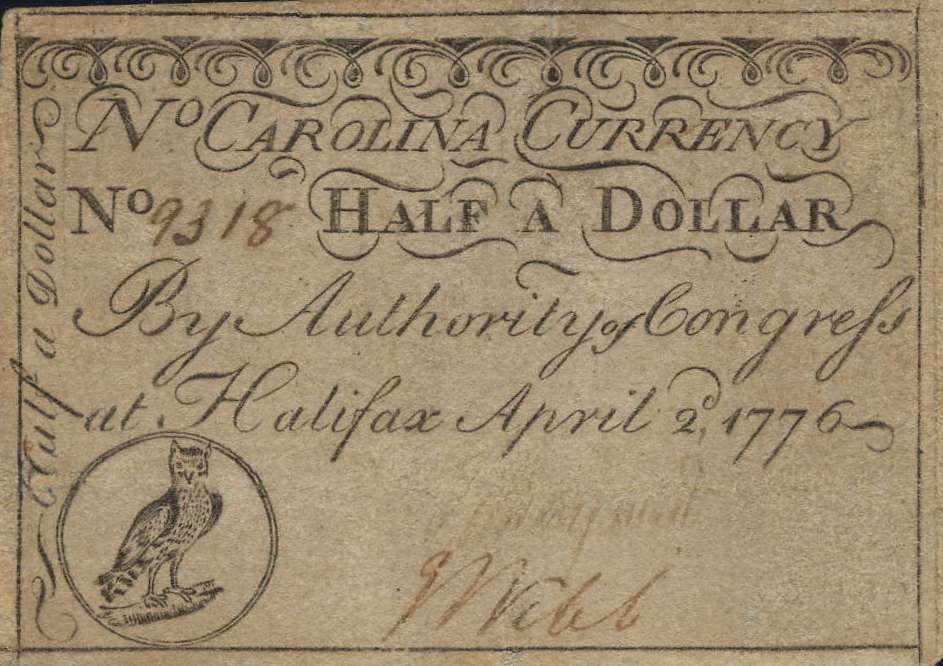 No CAROLINA CURRENCY
No 9318 HALF A DOLLAR
By Authority of Congreſs
at Halifax April 2d, 1776
Half a Dollar
Webb